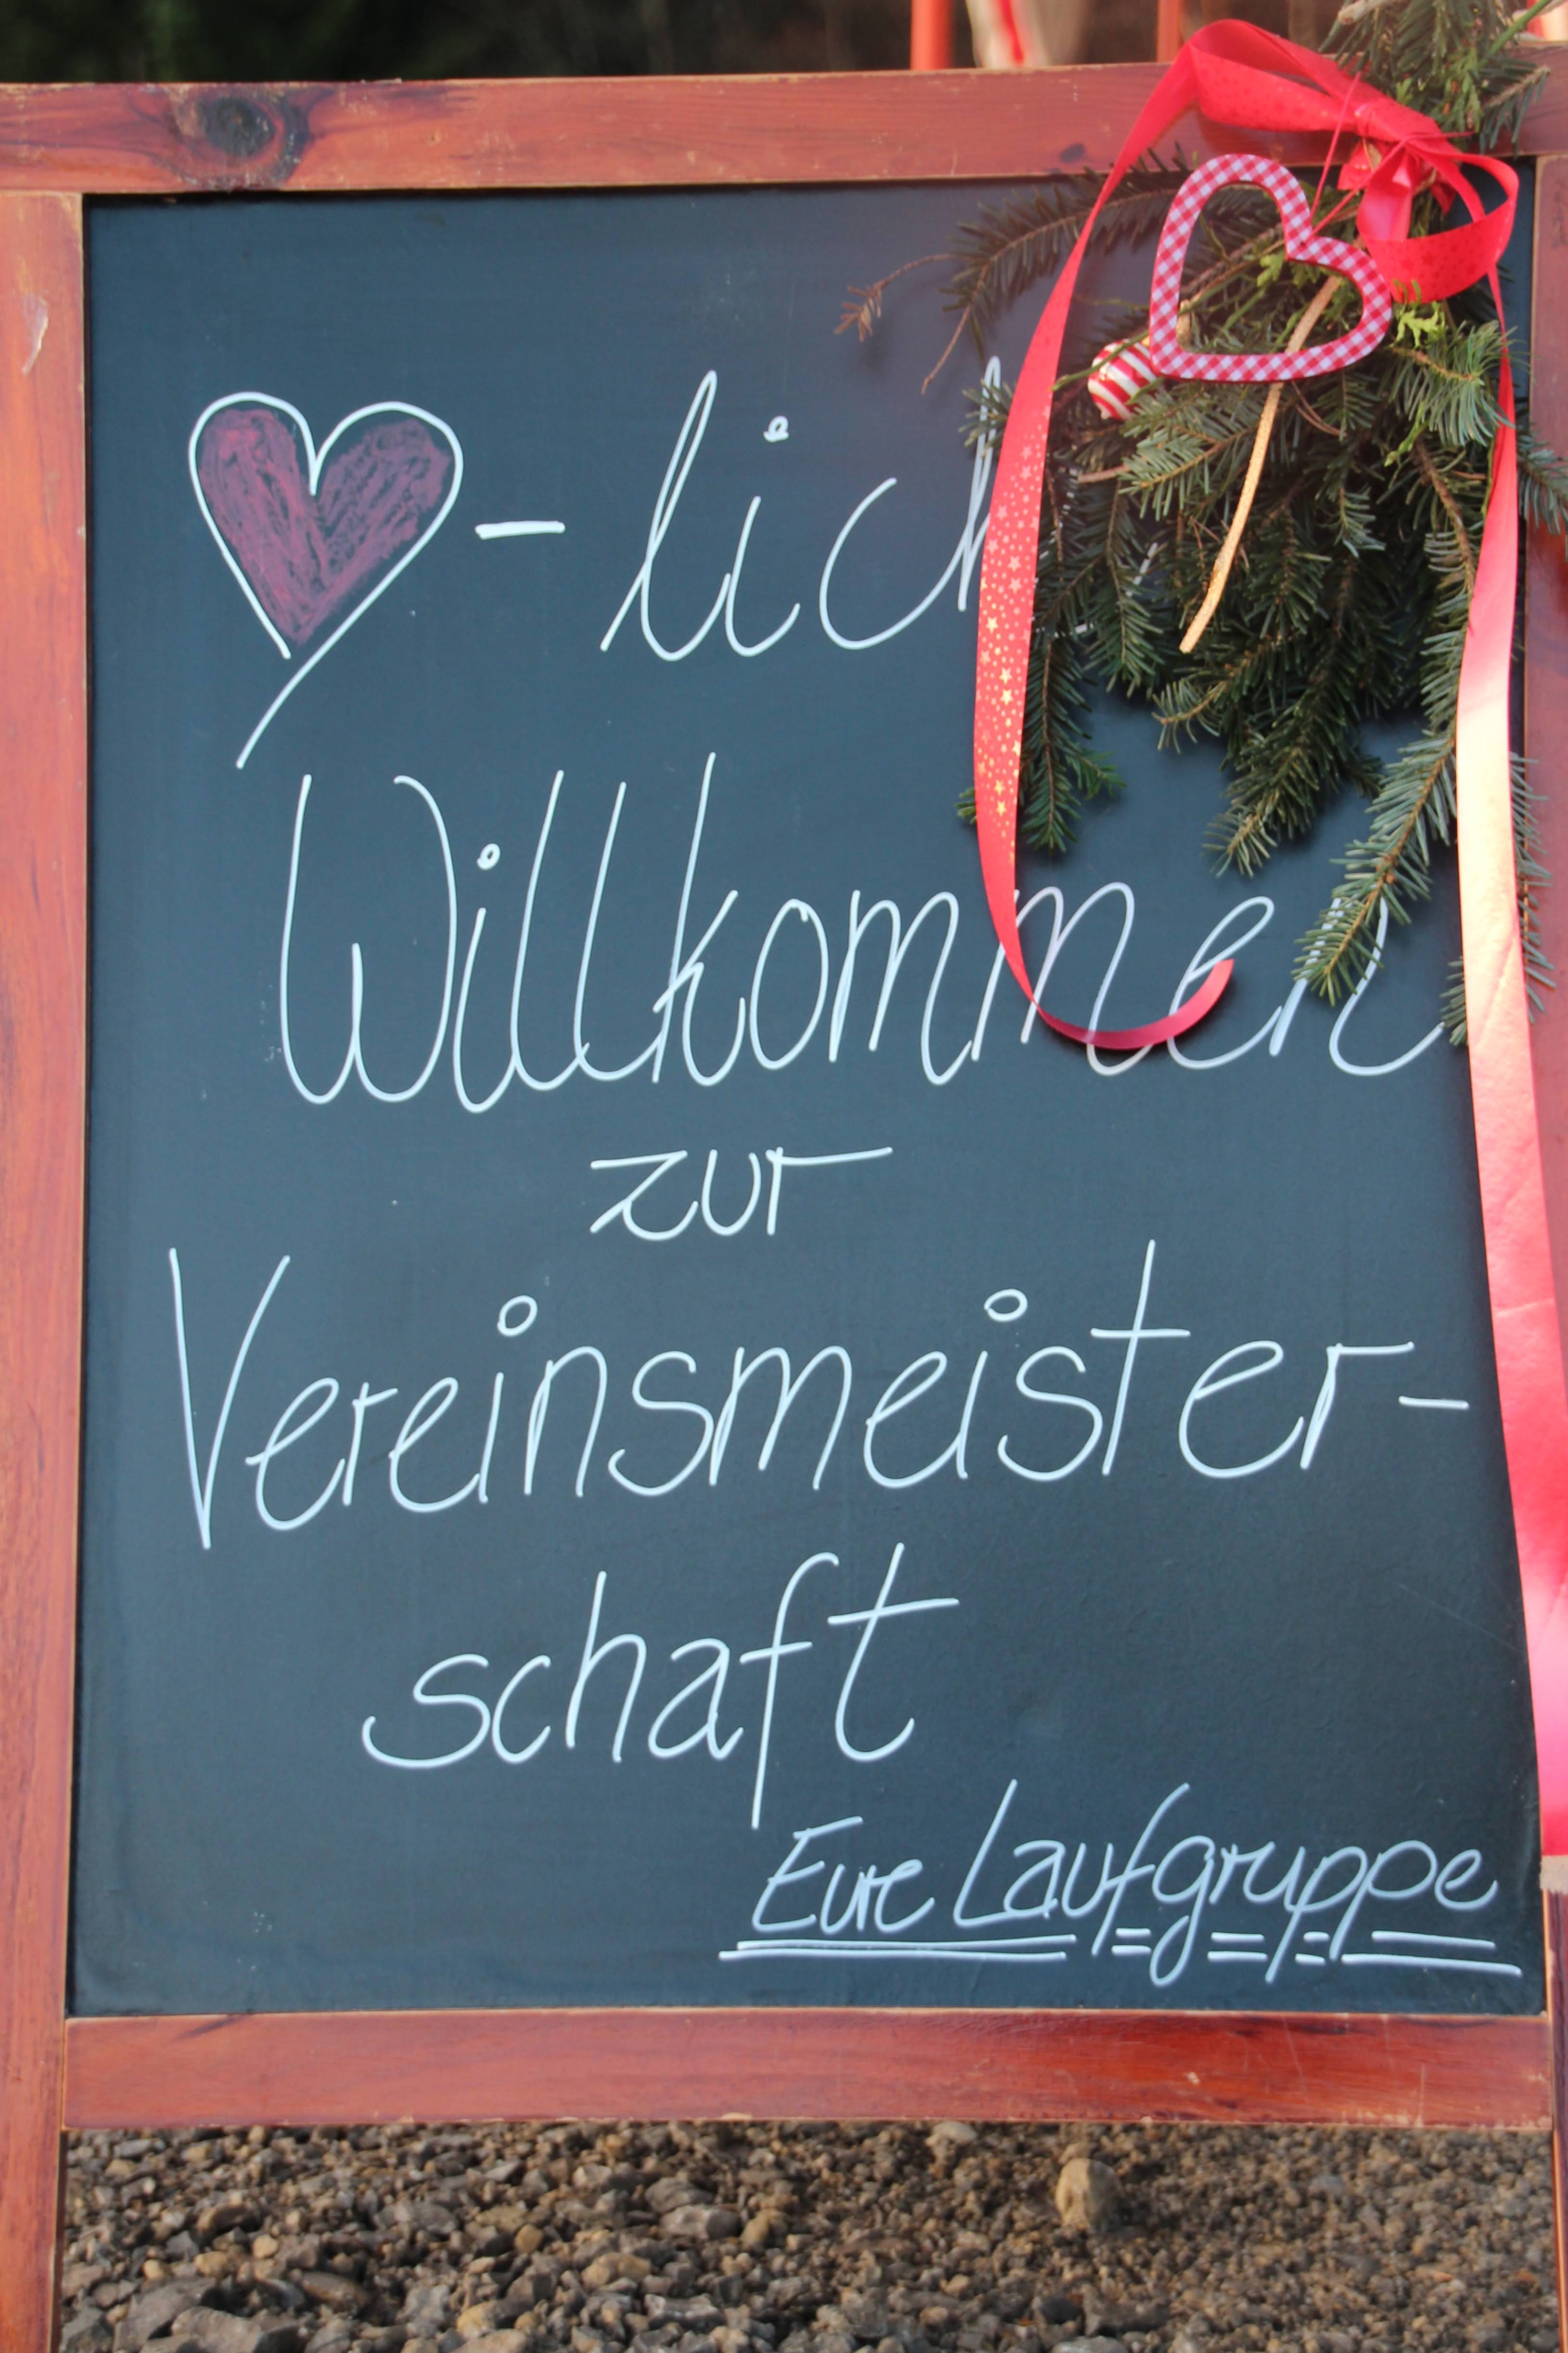 ♥-lich
Willkommen
zur
Vereinsmeister-
schaft
Eure Laufgruppe